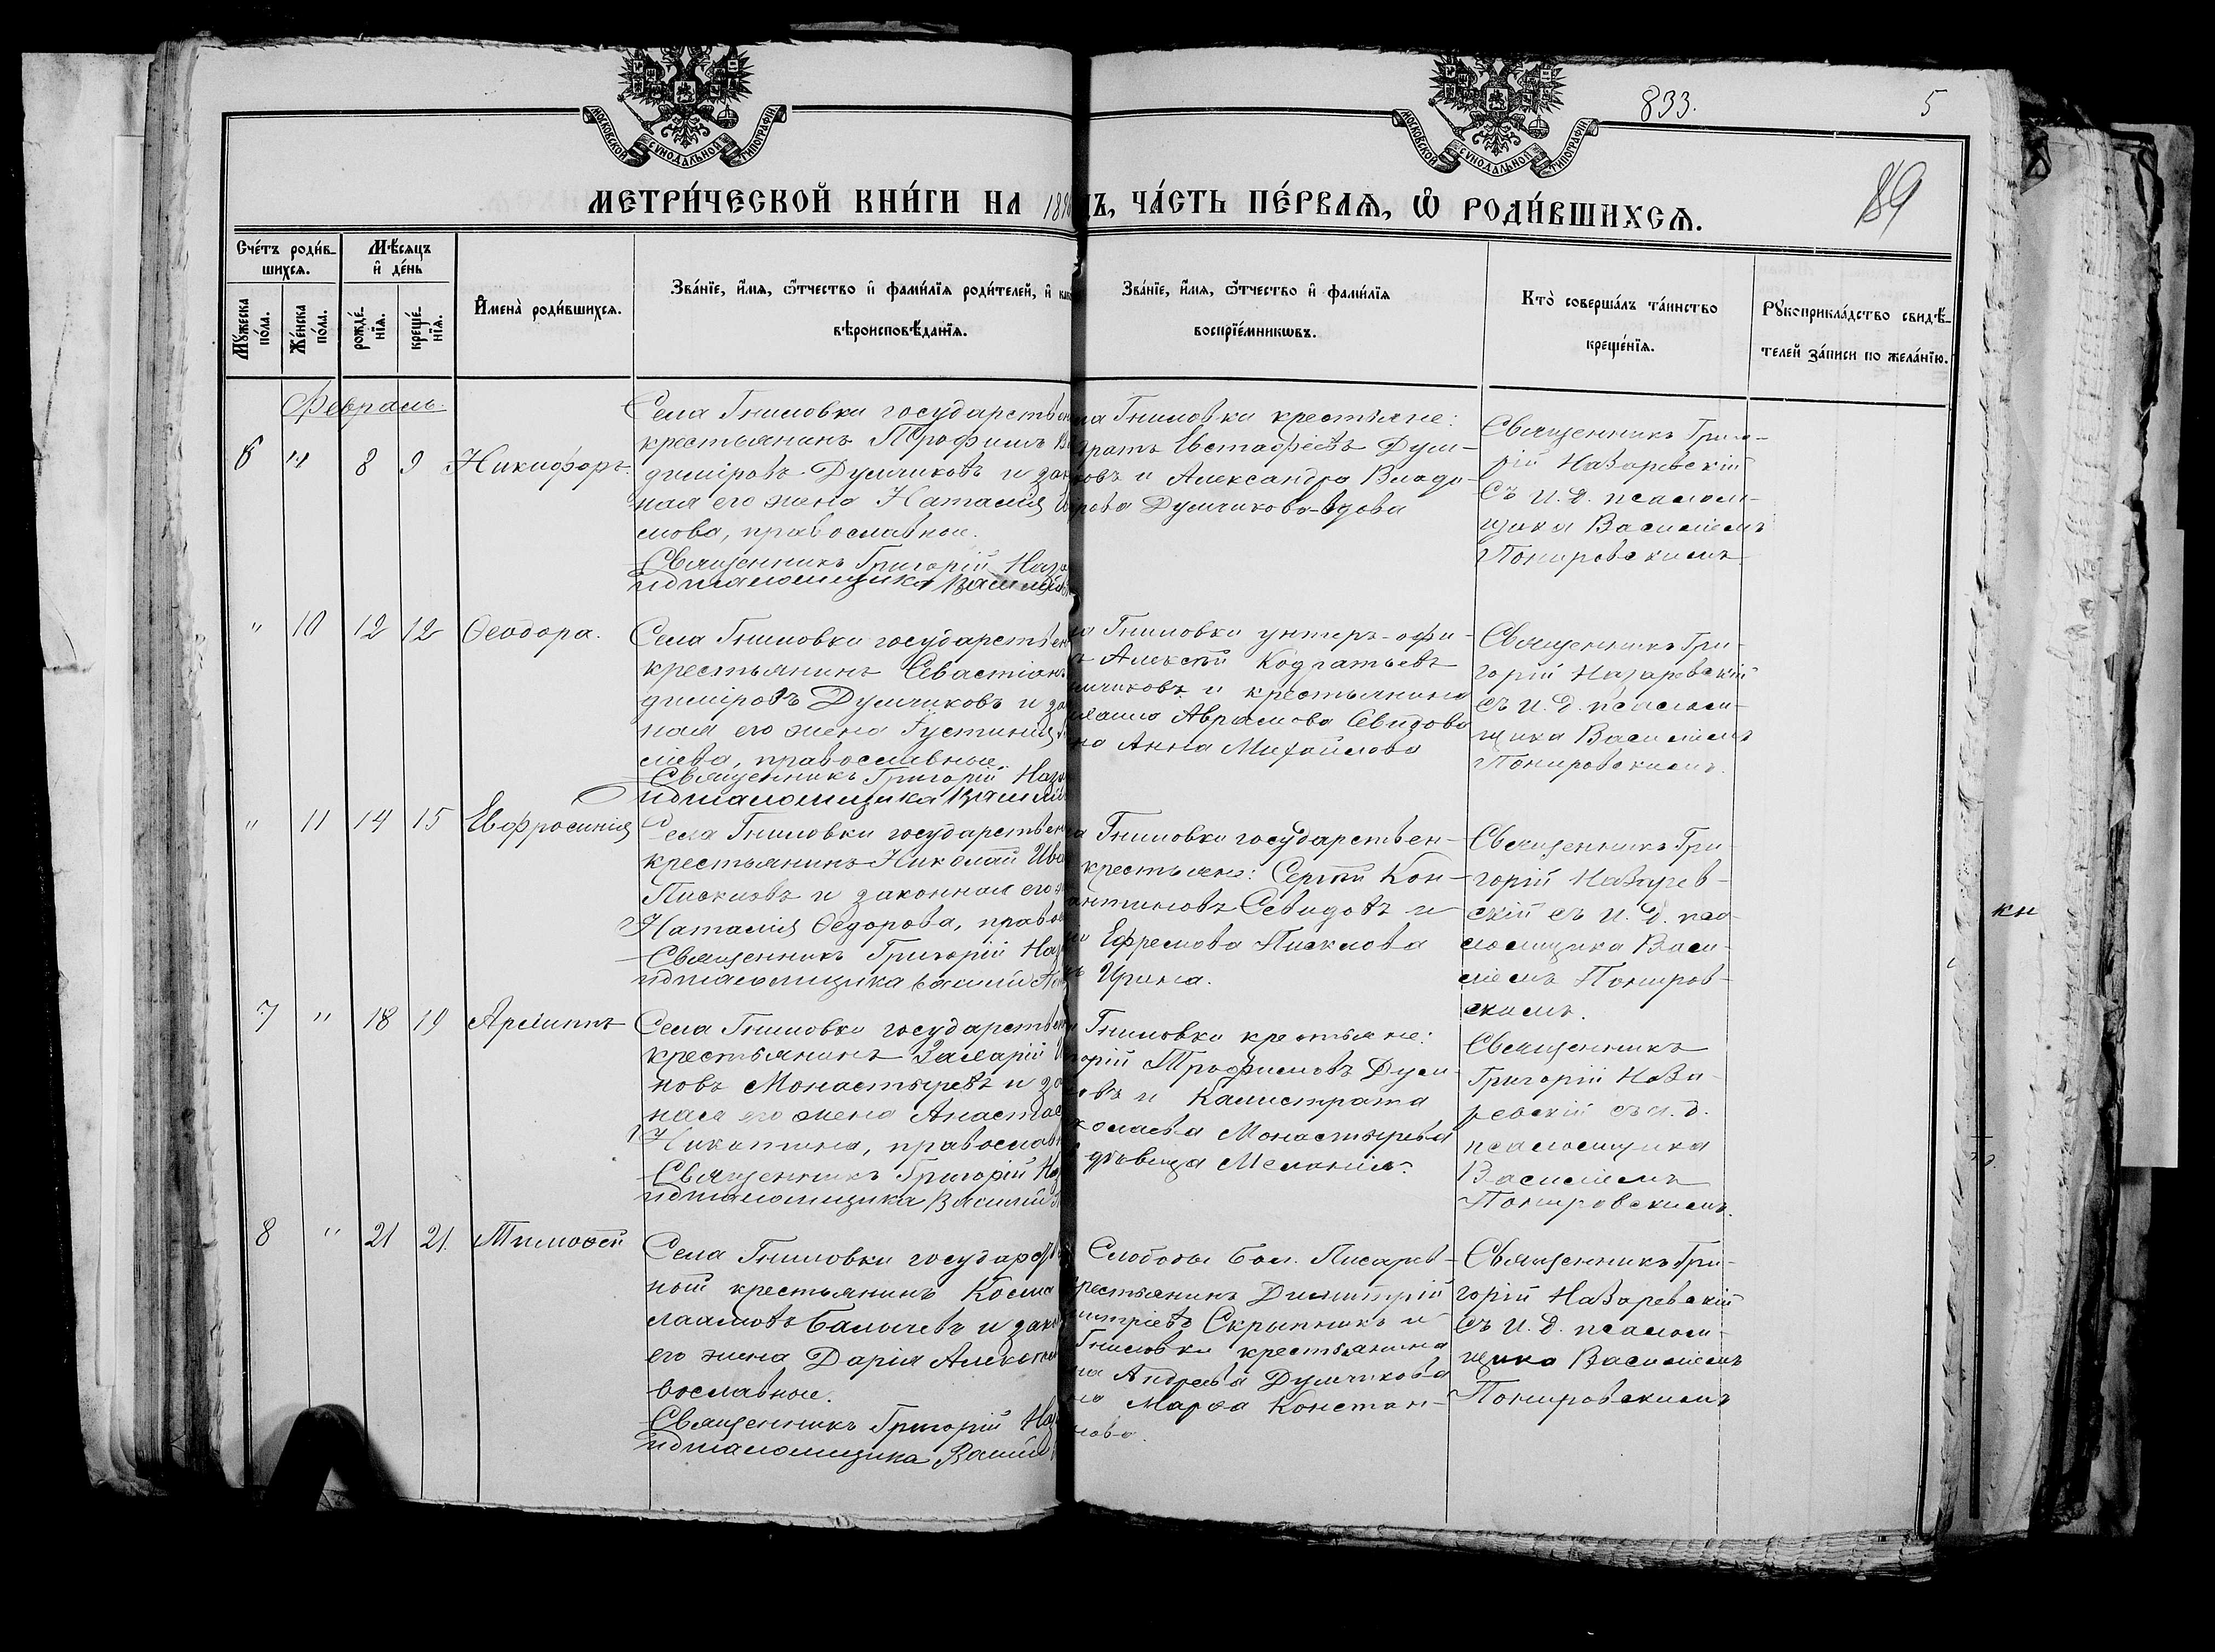 833.
5
89
МОСКОВСКОЙ СѴНОДАЛЬНОЙ ТИПОГРАФІИ
МОСКОВСКОЙ СѴНОДАЛЬНОЙ ТИПОГРАФІИ
МЕТРИ́ЧЕСКОЙ КНИ́ГИ НА 18
Ъ, ЧА́СТЬ ПЕ́РВАѦ, Ѡ РОДИ́ВШИХСѦ.
Сче́тъ роди́в-
шихсѧ.
Мѣ́сѧцъ
и҆ де́нь
Мꙋ́жеска
по́ла.
Же́нска
по́ла.
рожде́-
нїѧ.
креще́-
нїѧ.
И҆мена̀ роди́вшихсѧ.
Зва́нїе, и҆́мѧ, ѻ҆́тчество и҆ фами́лїѧ роди́телей, и҆
вѣроисповѣ́данїѧ.
Зва́нїе, и҆́мѧ, ѻ҆́тчество и҆ фами́лїѧ
воспрїе́мникѡвъ.
Кто̀ соверша́лъ та́инство
креще́нїѧ.
Рꙋкоприкла́дство свидѣ́-
телей за́писи по жела́нїю.
Февраль.
6 " 8 9 Никифоръ.
Села Гниловки государствен
крестьянинъ Трофимъ В
диміровъ Думчиковъ и зак
ная его жена Наталія
мова, православное.
Священникъ Григорій Наза
И д псаломщика Василій
ла Гниловки крестьяне:
дратъ Евстафіевъ Дум-
ковъ и Александра Влади-
рова Думчикова-вдова
Священникъ Григо-
рій Назаревскій
съ И. д. псалом-
щика Василіемъ
Понировскимъ
" 10 12 12 Ѳеодора.
Села Гниловки государствен
крестьянинъ Севастіанъ
диміровъ Думчиковъ и за
ная его жена Іустинія
сіева, православные.
Священникъ Григорій Наза
И д псаломщика Василій
ла Гниловки унтеръ-офи-
ъ Алексѣй Кодратьевъ
мчиковъ и крестьянина
Аврамова Севидова
на Анна Михайлова
Священникъ Гри-
горій Назаревскій
съ И. д. псалом-
щика Василіемъ
Понировскимъ.
" 11 14 15 Евфросинія
Села Гниловки государствен
крестьянинъ Николай Ива
Пискловъ и законная его ж
Наталія Ѳедорова, право
Священникъ Григорій Наз
И д псаломщика Василій
а Гниловки государствен-
крестьяне: Сергѣй Кон-
антиновъ Севидовъ и
Ефремова Писклова
ь Ирина.
Священникъ Гри-
горій Назарев-
скій съ И. д. пса-
ломщика Васи-
ліемъ Пониров-
скимъ.
7 " 18 19 Архиппъ
Села Гниловки государствен
крестьянинъ Захарій И
новъ Монастыревъ и за
ная его жена Анастас
Никитина, православ
Священникъ Григорій На
И д псаломщика Василій
Гниловки крестьяне:
горій Трофимовъ Дум-
овъ и Калистрата
колаева Монастырева
дѣвица Меланія.
Священникъ
Григорій Наза-
ревскій съ и. д.
псаломщика
Василіемъ
Понировскимъ.
8 " 21 21. Тимоѳей
Села Гниловки государст
ной крестьянинъ Косма
лаамовъ Балычевъ и зак
его жена Дарія Алексѣе
вославные.
Священникъ Григорій Наз
И д псаломщика Василій
Слободы Бол. Писарев-
рестьянинъ Димитрій
митріевъ Скрыпникъ и
Гниловки крестьянина
на Андреева Думчикова
на Марѳа Констан-
нова.
Священникъ Гри-
горій Назаревскій
съ И. д. псалом-
щика Василіемъ
Понировскимъ
кн